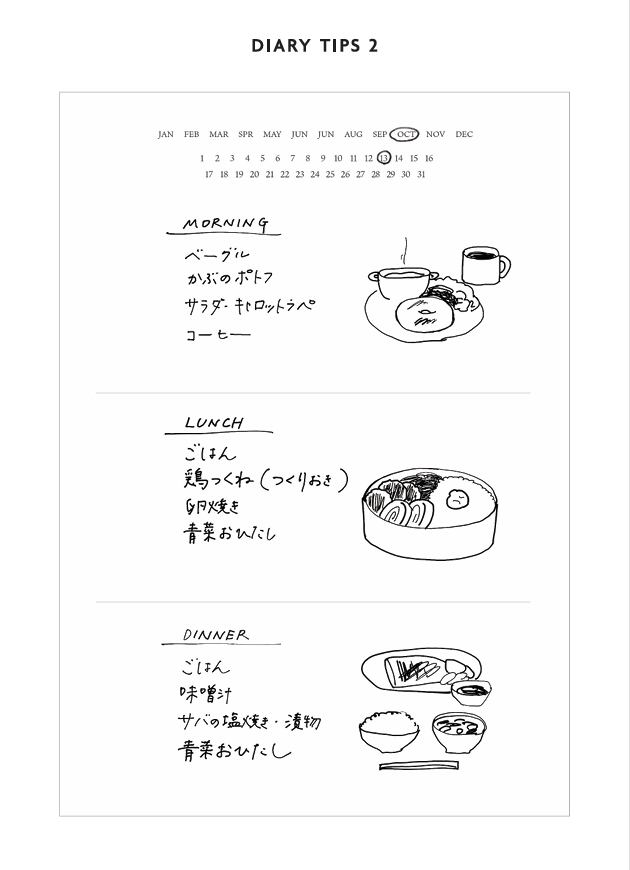 DIARY TIPS 2
JAN FEB MAR SPR MAY JUN JUN AUG SEP OCT NOV DEC
1 2 3 4 5 6 7 8 9 10 11 12 13 14 15 16
17 18 19 20 21 22 23 24 25 26 27 28 29 30 31
MORNING
ベーグル
かぶのポトフ
サラダ・キャロットラペ
コーヒー
LUNCH
ごはん
鶏つくね(つくりおき)
卵焼き
青菜おひたし
DINNER
ごはん
味噌汁
サバの塩焼き・漬物
青菜おひたし